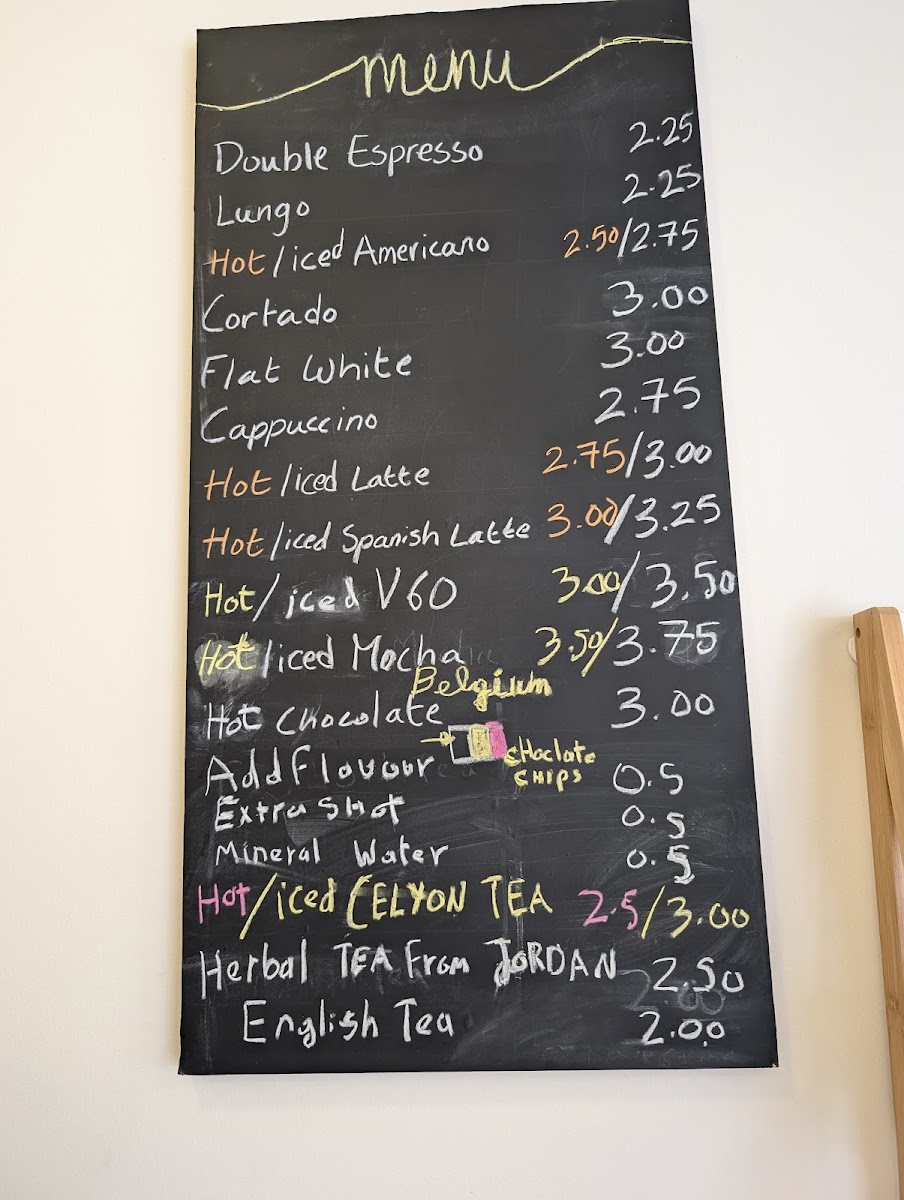 menu
Double Espresso 2.25
Lungo 2.25
Hot/iced Americano 2.50/2.75
Cortado 3.00
Flat White 3.00
Cappuccino 2.75
Hot/iced Latte 2.75/3.00
Hot/iced Spanish Latte 3.00/3.25
Hot/iced V60 3.00/3.50
Hot/iced Mocha 3.50/3.75
Belgium
Hot Chocolate 3.00
CHoclate
CHIPS
Add Flavour 0.5
Extra SHot 0.5
Mineral Water 0.5
Hot/iced CELYON TEA 2.5/3.00
Herbal TEA From JORDAN 2.50
English Tea 2.00